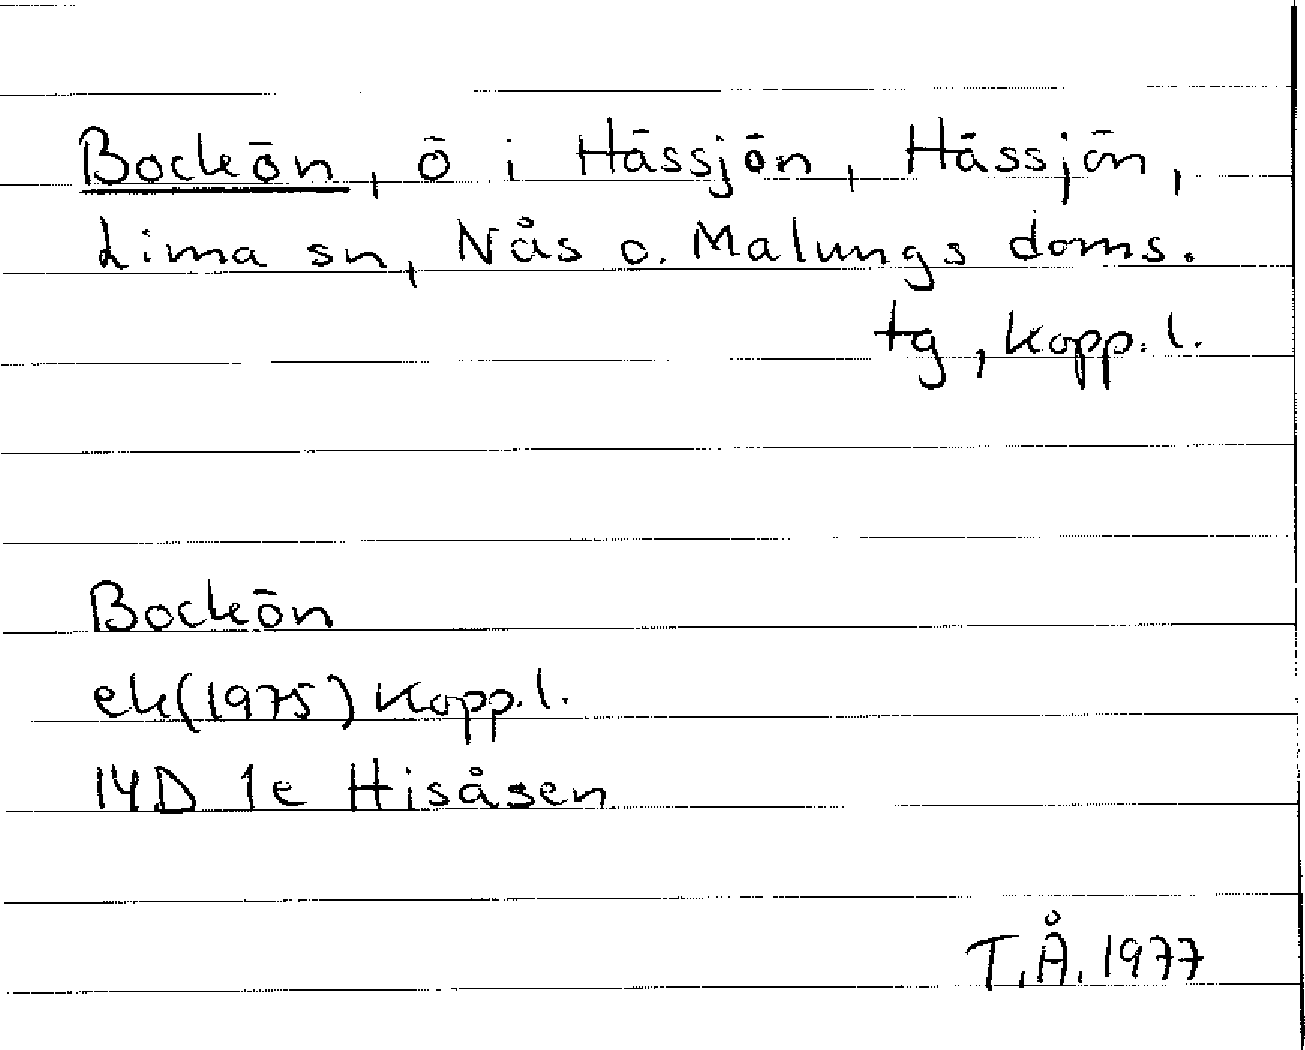 Bockön, ö i Hässjön, Hässjön,
Lima sn, Nås o. Malungs doms.
tg, Kopp. l.
Bockön
ek (1975) Kopp. l.
14D 1e Hisåsen
T.Å. 1977